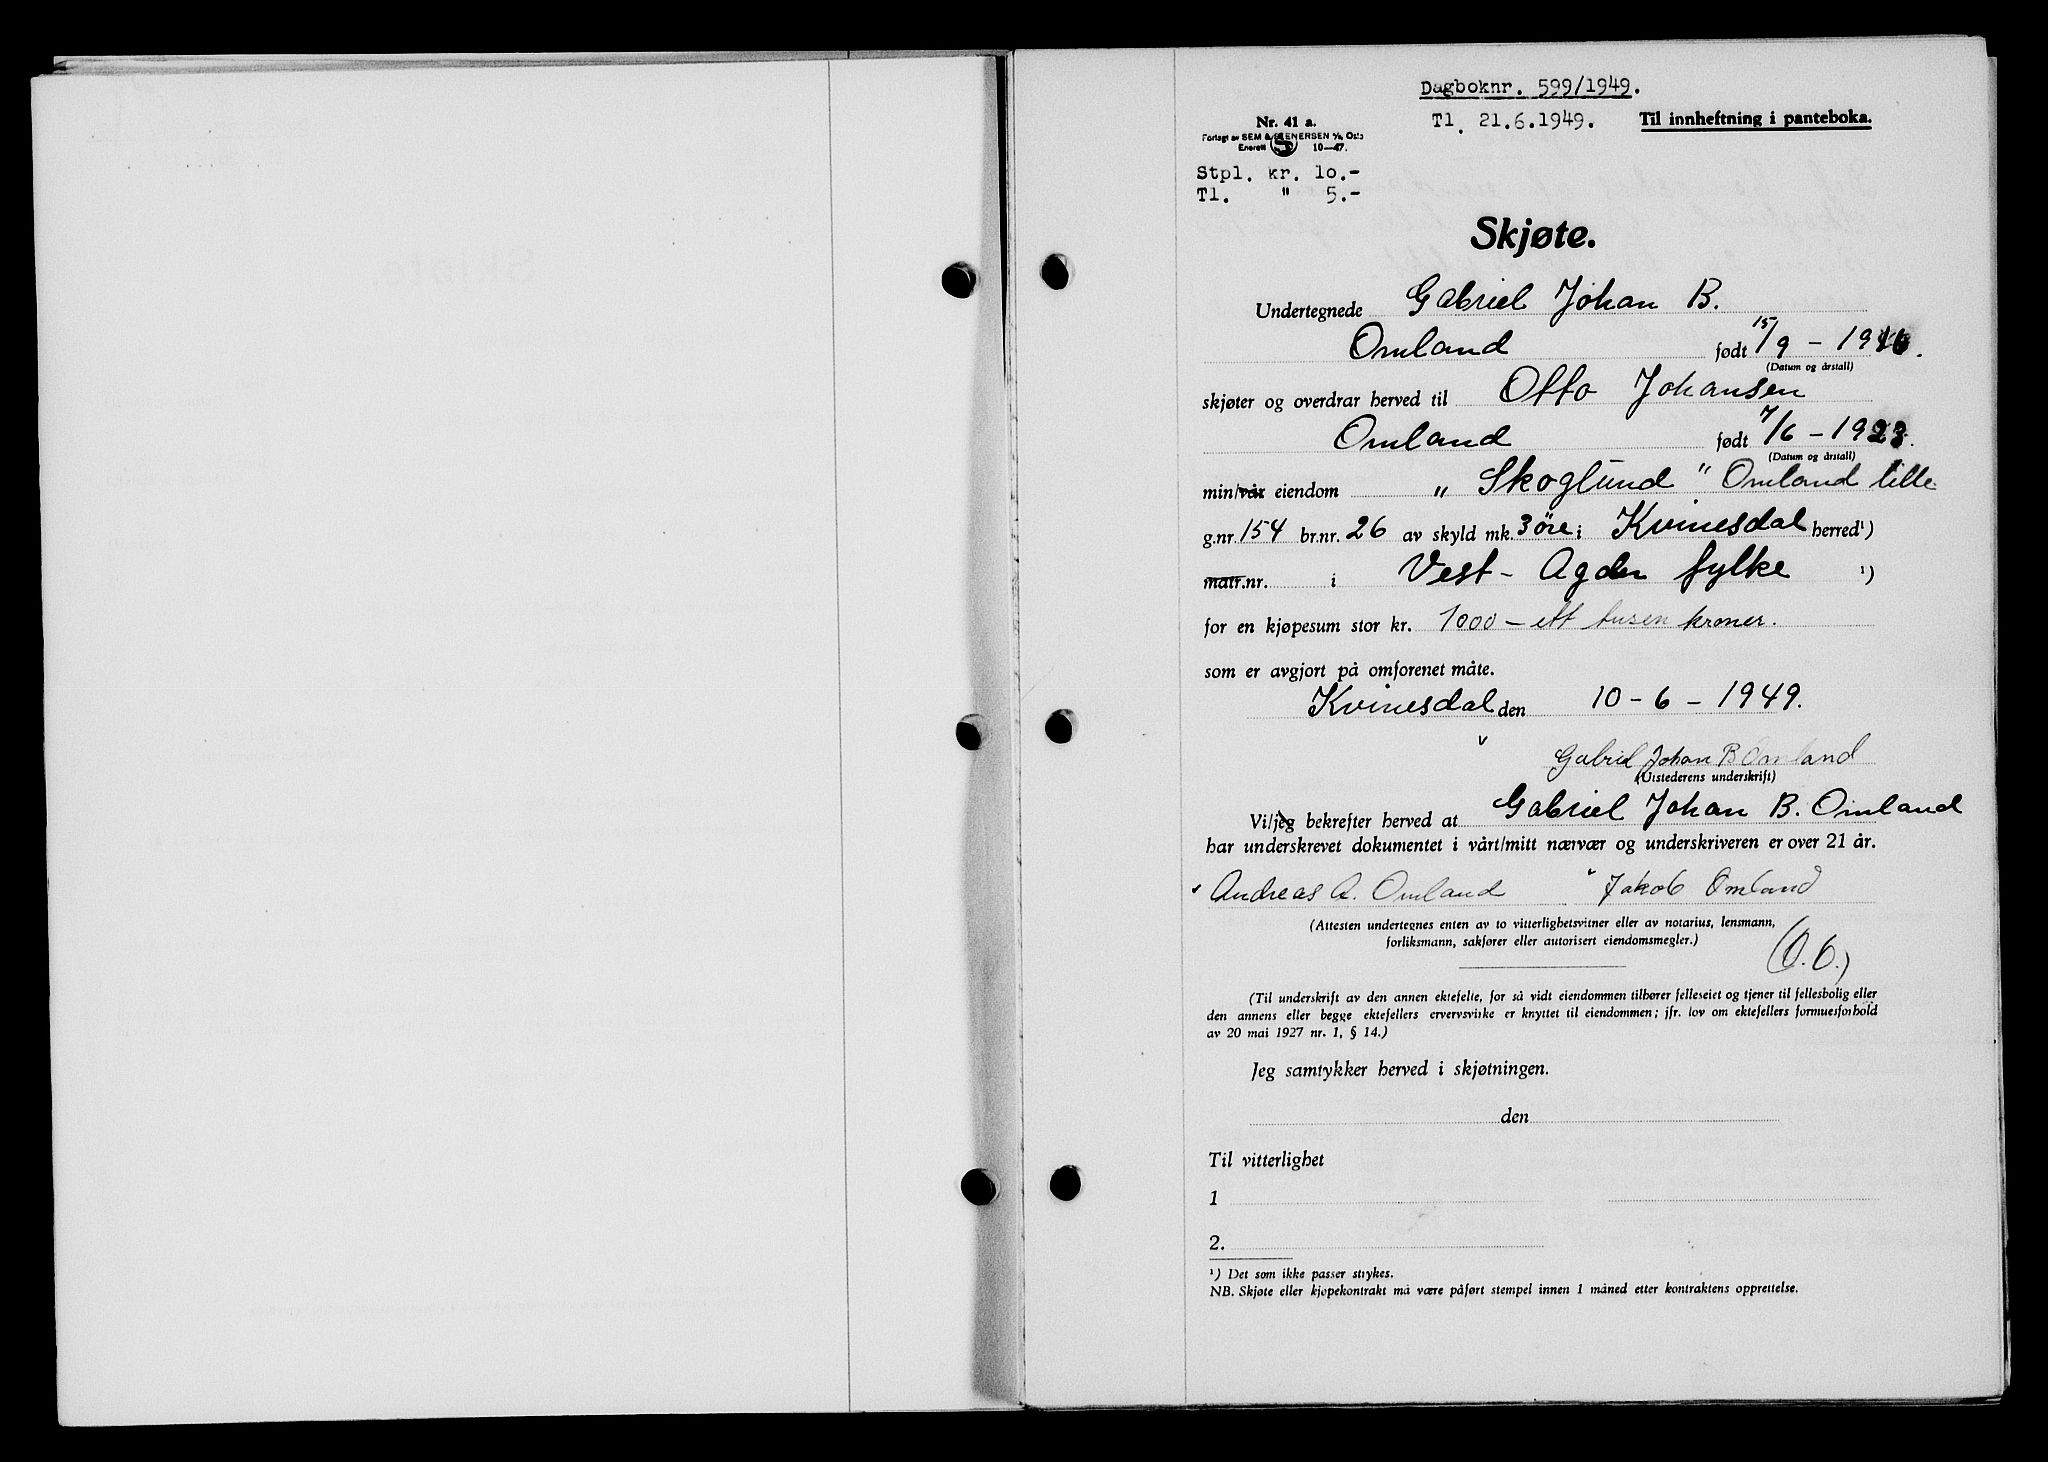 Dagboknr. 599/1949.
Nr. 41 a.
Tl. 21.6.1949. Til innheftning i panteboka.
Forlagt av SEM & STENERSEN A/S, Oslo
Enerett 10—47.
Stpl. kr. 10.-
Tl. " 5.-
Skjøte.
Undertegnede Gabriel Johan B.
Omland født 15/9 - 1916.
(Datum og årstall)
skjøter og overdrar herved til Otto Johansen
Omland født 7/6 - 1923.
(Datum og årstall)
min/vår eiendom „ Skoglund " Omland lille
g.nr. 154 br.nr. 26 av skyld mk. 3 øre i Kvinesdal herred¹)
matr.nr. i Vest-Agder fylke ¹)
for en kjøpesum stor kr. 1000 - ett tusen kroner.
som er avgjort på omforenet måte.
Kvinesdal den 10 - 6 - 1949.
Gabriel Johan B Omland
(Utstederens underskrift)
Vi/jeg bekrefter herved at Gabriel Johan B. Omland
har underskrevet dokumentet i vårt/mitt nærvær og underskriveren er over 21 år.
Andreas A. Omland " Jakob Omland
(Attesten undertegnes enten av to vitterlighetsvitner eller av notarius, lensmann,
forliksmann, sakfører eller autorisert eiendomsmegler.)
(O.6.)
(Til underskrift av den annen ektefelle, for så vidt eiendommen tilhører felleseiet og tjener til fellesbolig eller
den annens eller begge ektefellers ervervsvirke er knyttet til eiendommen; jfr. lov om ektefellers formuesforhold
av 20 mai 1927 nr. 1, § 14.)
Jeg samtykker herved i skjøtningen.
den
Til vitterlighet
1
2.
¹) Det som ikke passer strykes.
NB. Skjøte eller kjøpekontrakt må være påført stempel innen 1 måned etter kontraktens opprettelse.